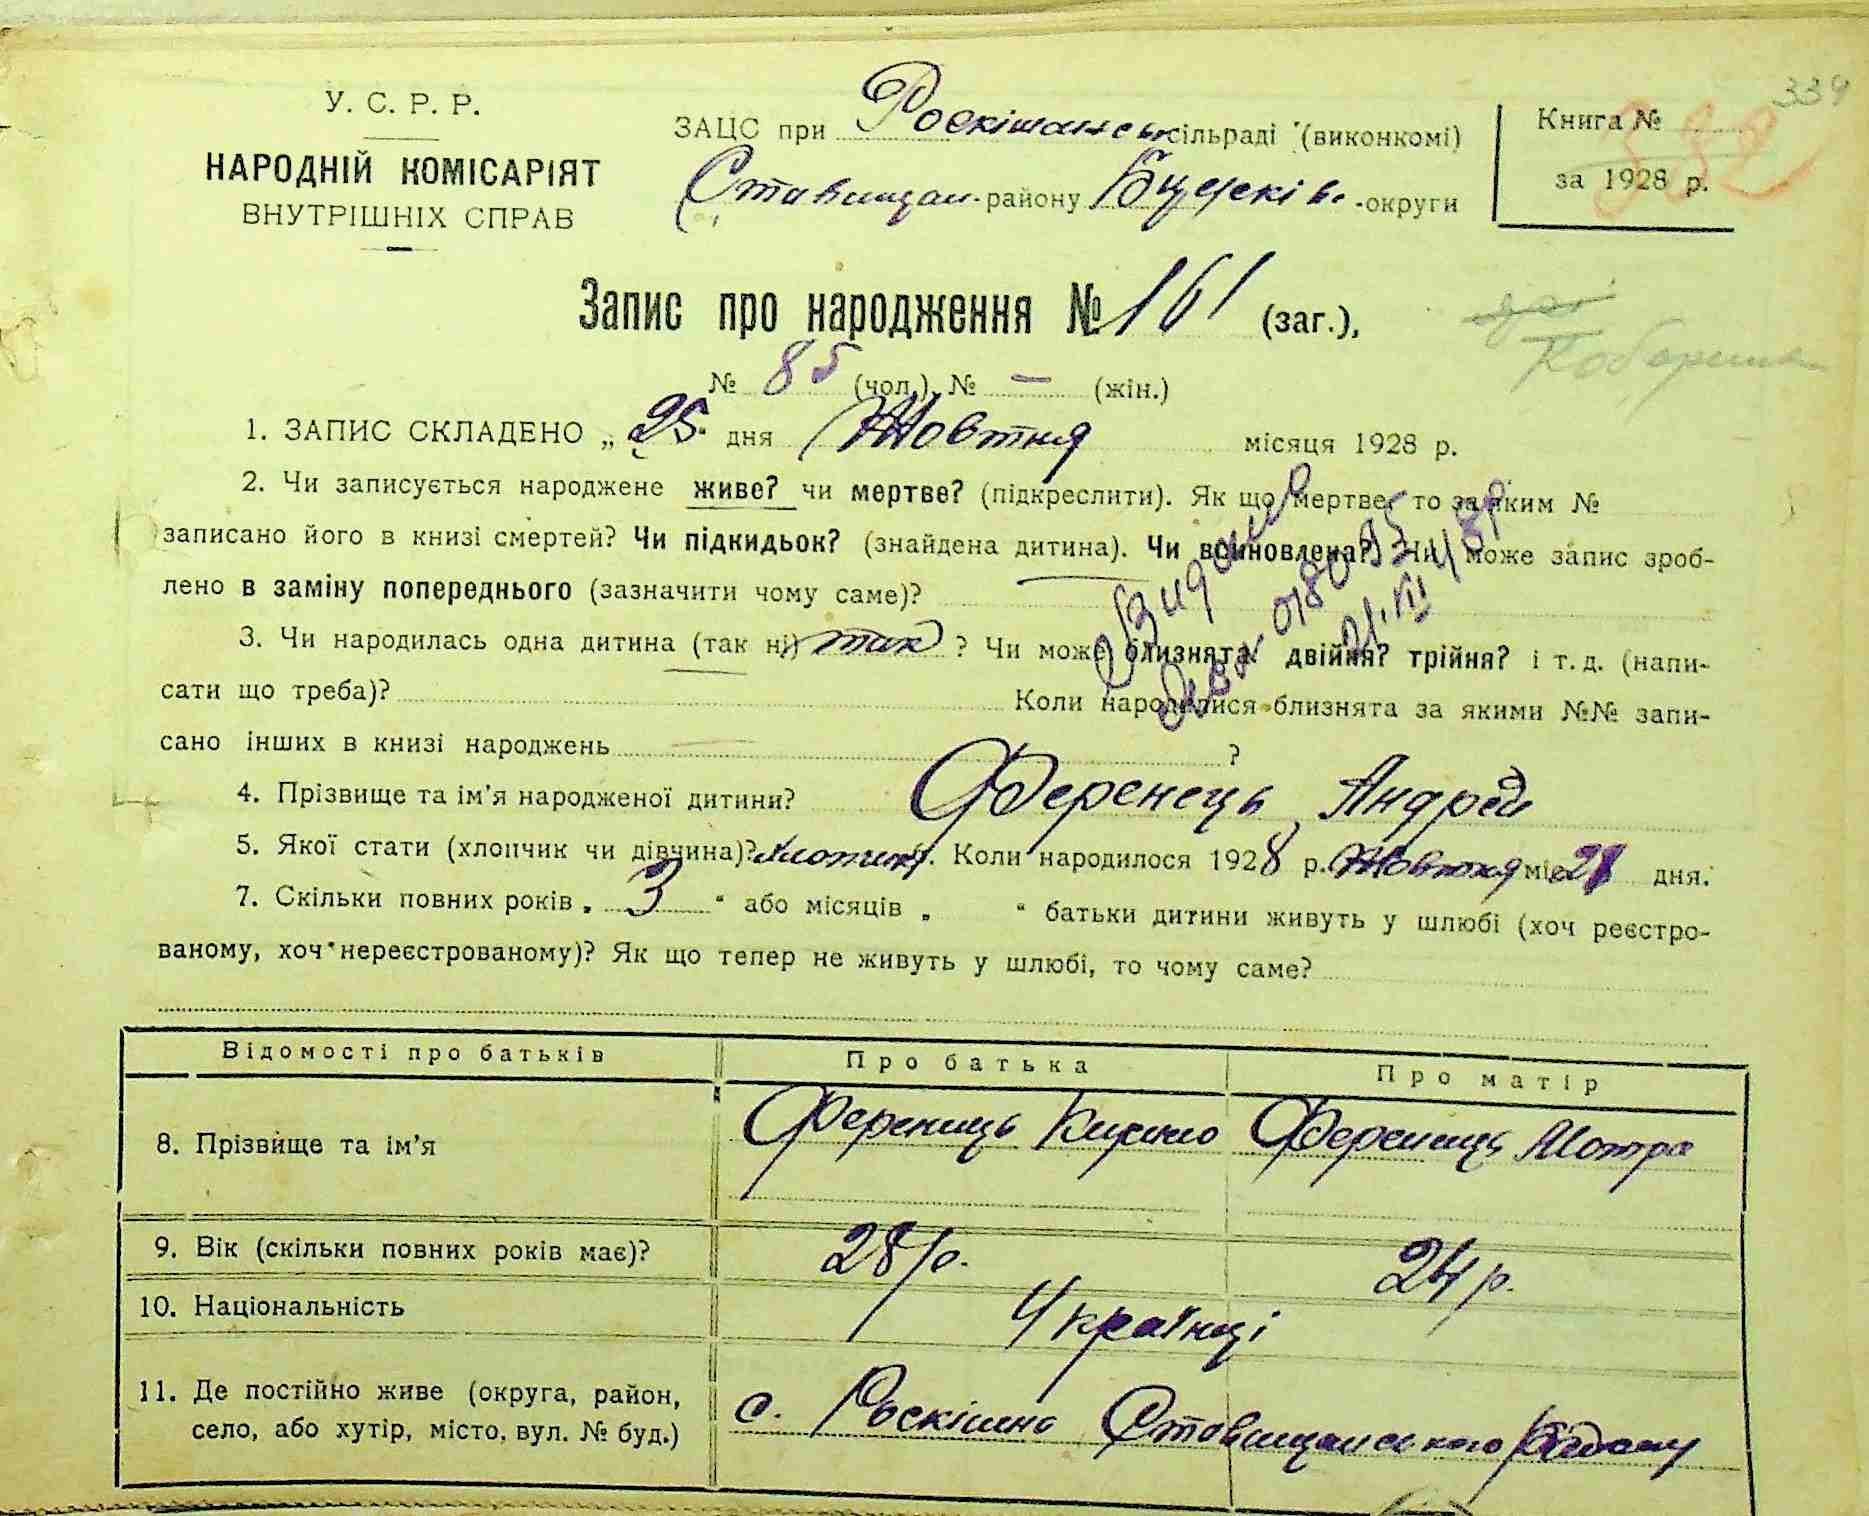 339
У. С. Р. Р.
НАРОДНІЙ КОМІСАРІЯТ
ВНУТРІШНІХ СПРАВ
ЗАЦС при Роскішансь сільраді (виконкомі)
Ставищан. району Бцерків. округи
Книга №
за 1928 р.
382
Запис про народження № 161 (заг.),
№ 85 (чол.), № — (жін.)
1. ЗАПИС СКЛАДЕНО „ 25 " дня Жовтня місяця 1928 р.
2. Чи записується народжене живе? чи мертве? (підкреслити). Як що мертве, то за яким №
записано його в книзі смертей? Чи підкидьок? (знайдена дитина). Чи всиновлена? Чи може запис зроб-
лено в заміну попереднього (зазначити чому саме)?
Видано
21.VII
3. Чи народилась одна дитина (так ні) так ? Чи може близнята: двійня? трійня? і т. д. (напи-
сати що треба)? Коли народилися близнята за якими №№ запи-
сано інших в книзі народжень ?
4. Прізвище та ім'я народженої дитини? Ференець Андрей
5. Якої стати (хлопчик чи дівчина)? Хлопчик. Коли народилося 1928 р. Жовтня міс 21 дня.
7. Скільки повних років „ 3 " або місяців „ " батьки дитини живуть у шлюбі (хоч реєстро-
ваному, хоч нереєстрованому)? Як що тепер не живуть у шлюбі, то чому саме?
Відомості про батьків Про батька Про матір
8. Прізвище та ім'я Ферениць Кирило Ференець Мотря
9. Вік (скільки повних років має)? 28 р. 24 р.
10. Національність Українці
11. Де постійно живе (округа, район,
село, або хутір, місто, вул. № буд.) с. Роскішна Ставищанського району